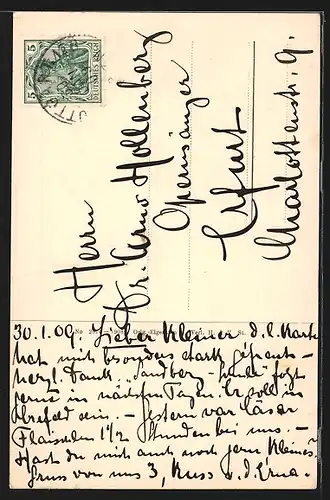 Herrn
Dr. Arno Hollenberg
Opernsänger
Erfurt
Charlottenstr. 9.
DEUTSCHES REICH
5
5
30.1.09. Lieber Kleiner d. l. Karte
hat mich besonders stark gefreut –
herzl. Dank. folgt
gerne in nächsten Tagen. Er soll in
ein. – gestern war
1 1/2 Stunden bei uns. –
Hast du mich auch noch gern Kleines?
Gruss von uns 3, Kuss v. d. Erna.